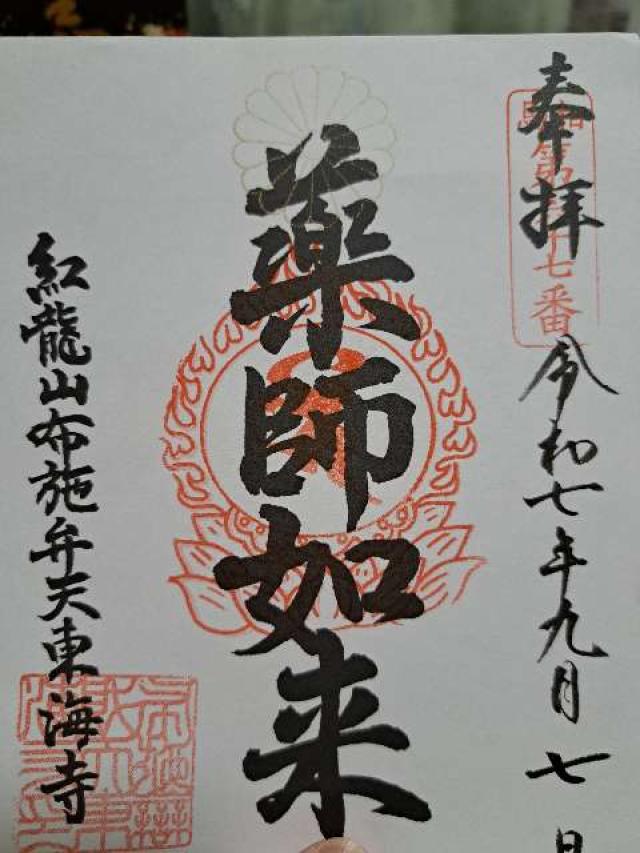 奉拝
令和七年九月七日
薬師如来
紅龍山布施弁天東海寺